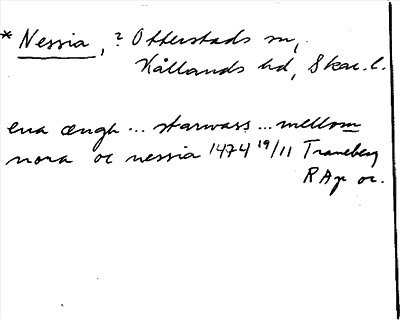 * Nessia, ? Otterstads sn,
Kållands hd, Skar. l.
ena ængh ... starwass ... mellom
nora oc nessia 1474 19/11 Traneberg
RAp or.